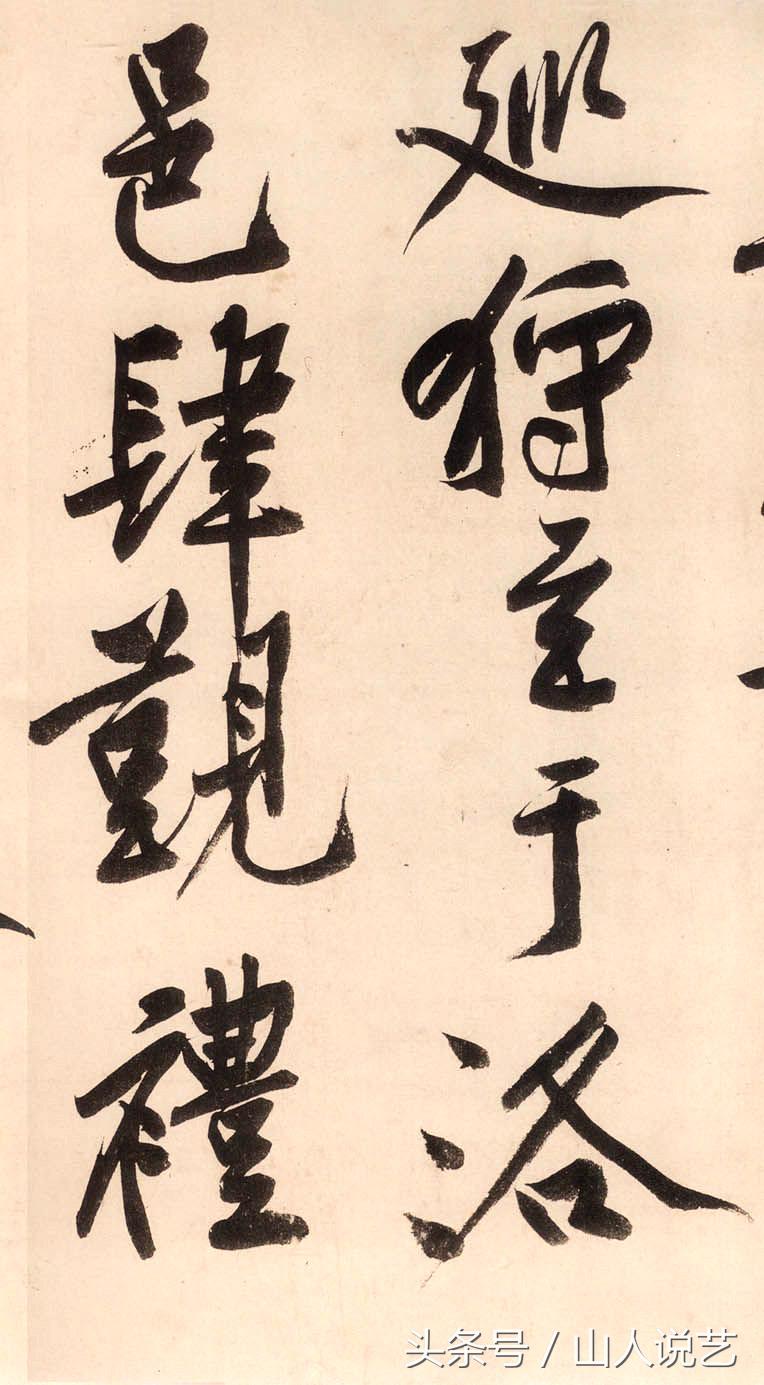 廵狩至于洛
邑肆覲禮
头条号 / 山人说艺